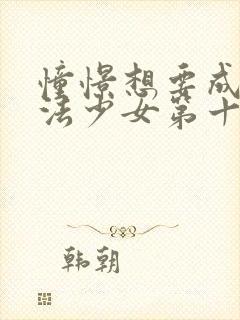 憧憬想要成
法少女第十
韩朝